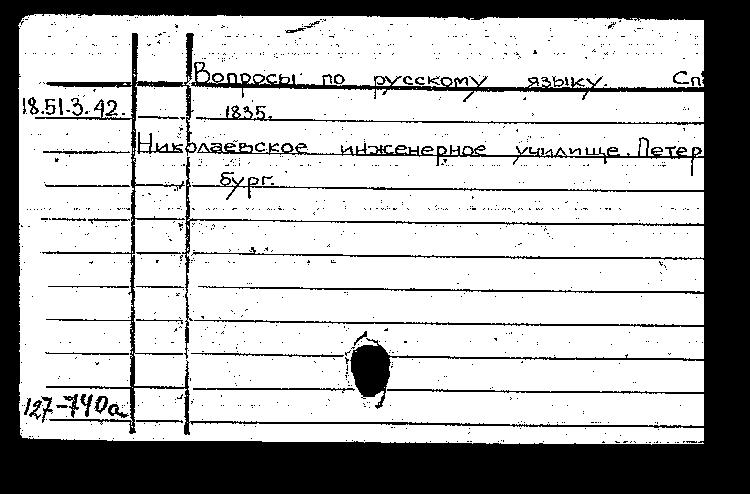 Вопросы по русскому языку. Сп
18.51.3.42.
1835.
Николаевское инженерное училище. Петер
бург.
127-740а